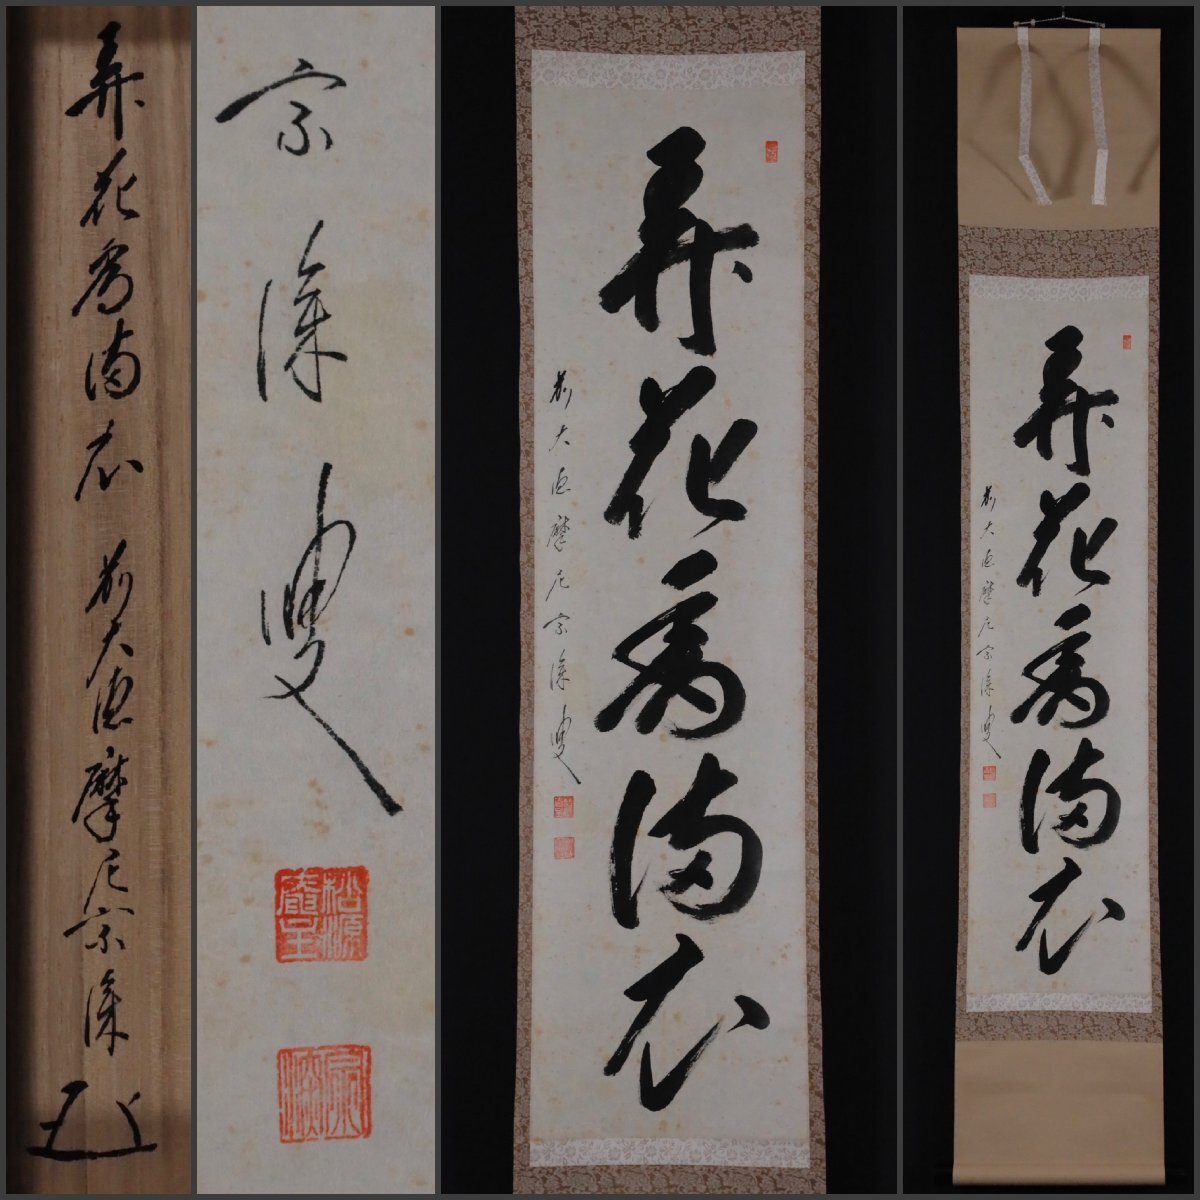 弄花香満衣 前大徳摩尼宗深
宗深叟
弄花香満衣
前大徳摩尼宗深叟
弄花香満衣
前大徳摩尼宗深叟